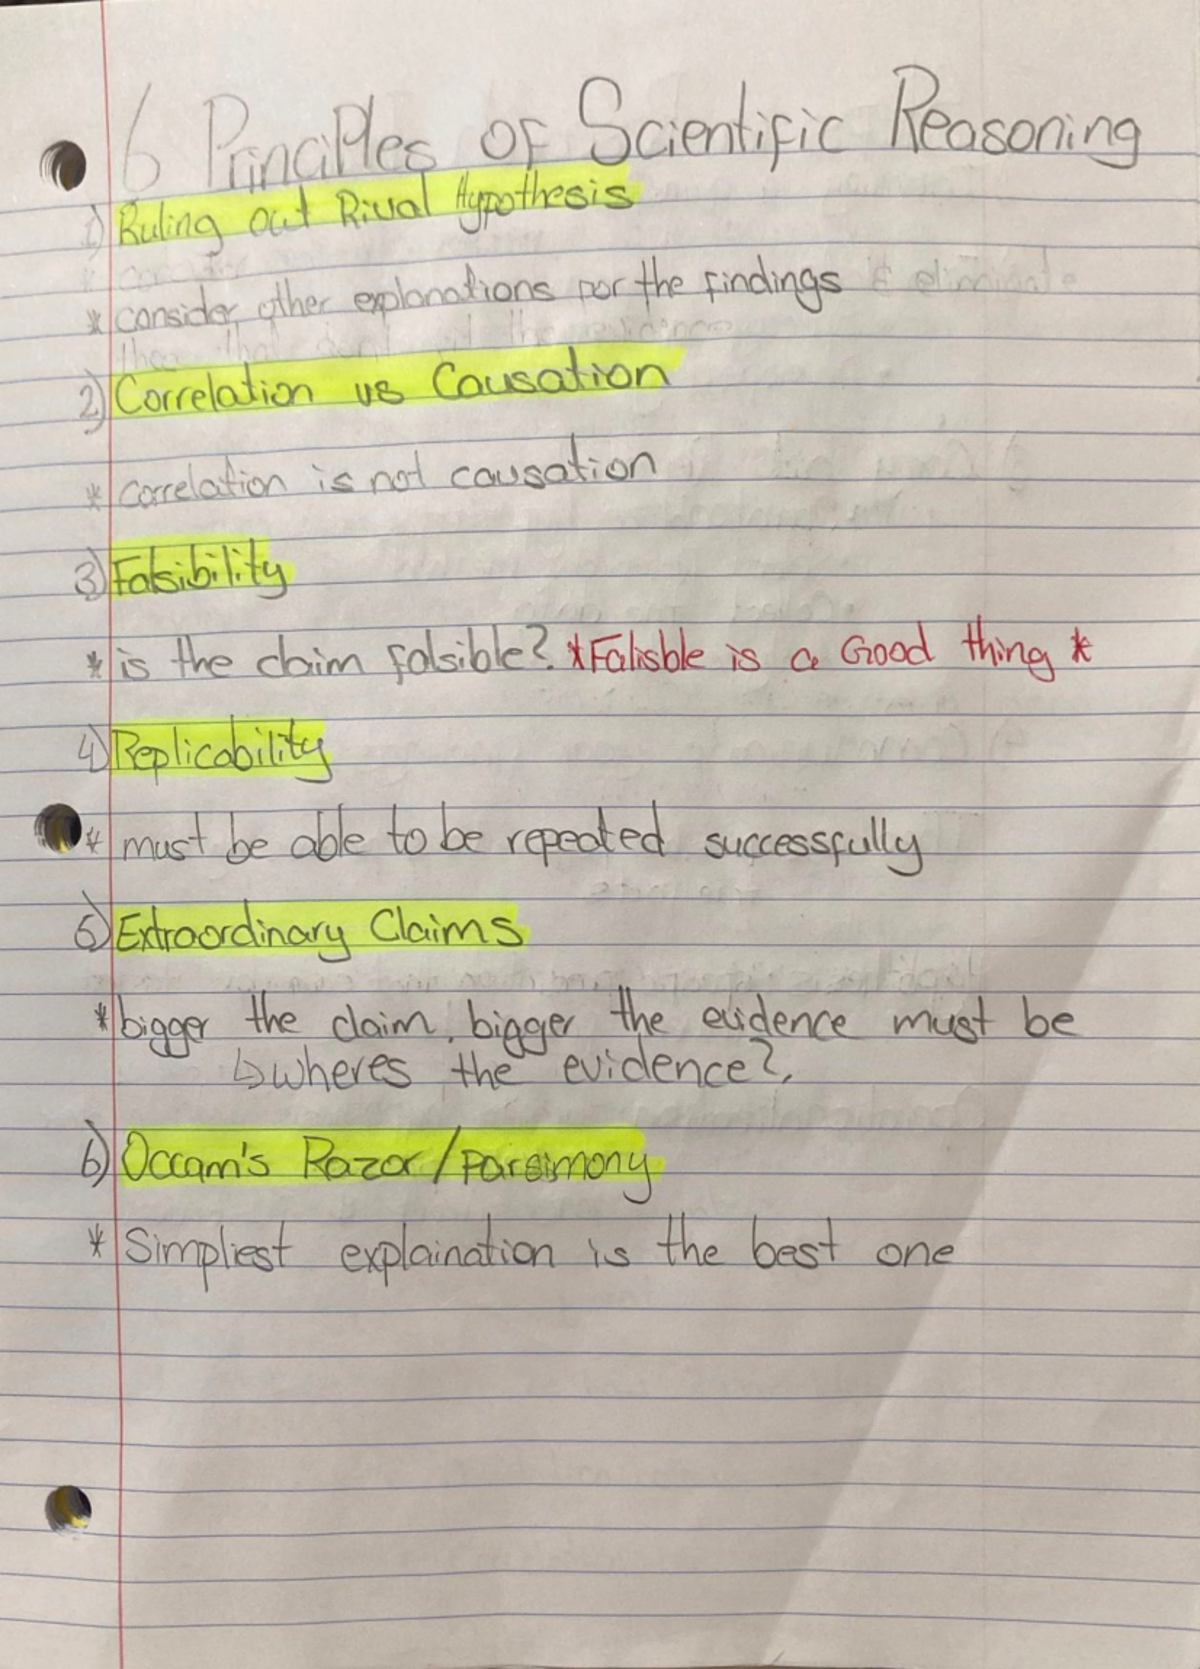 6 Principles of Scientific Reasoning
1) Ruling out Rival Hypothesis
* consider other explanations for the findings & eliminate
2) Correlation vs Causation
* correlation is not causation
3) Falsibility
* is the claim falsible? *Falisble is a Good thing *
4) Replicability
* must be able to be repeated successfully
5) Extraordinary Claims
* bigger the claim, bigger the evidence must be
↳ wheres the evidence?
6) Occam's Razor / parsimony
* Simpliest explaination is the best one